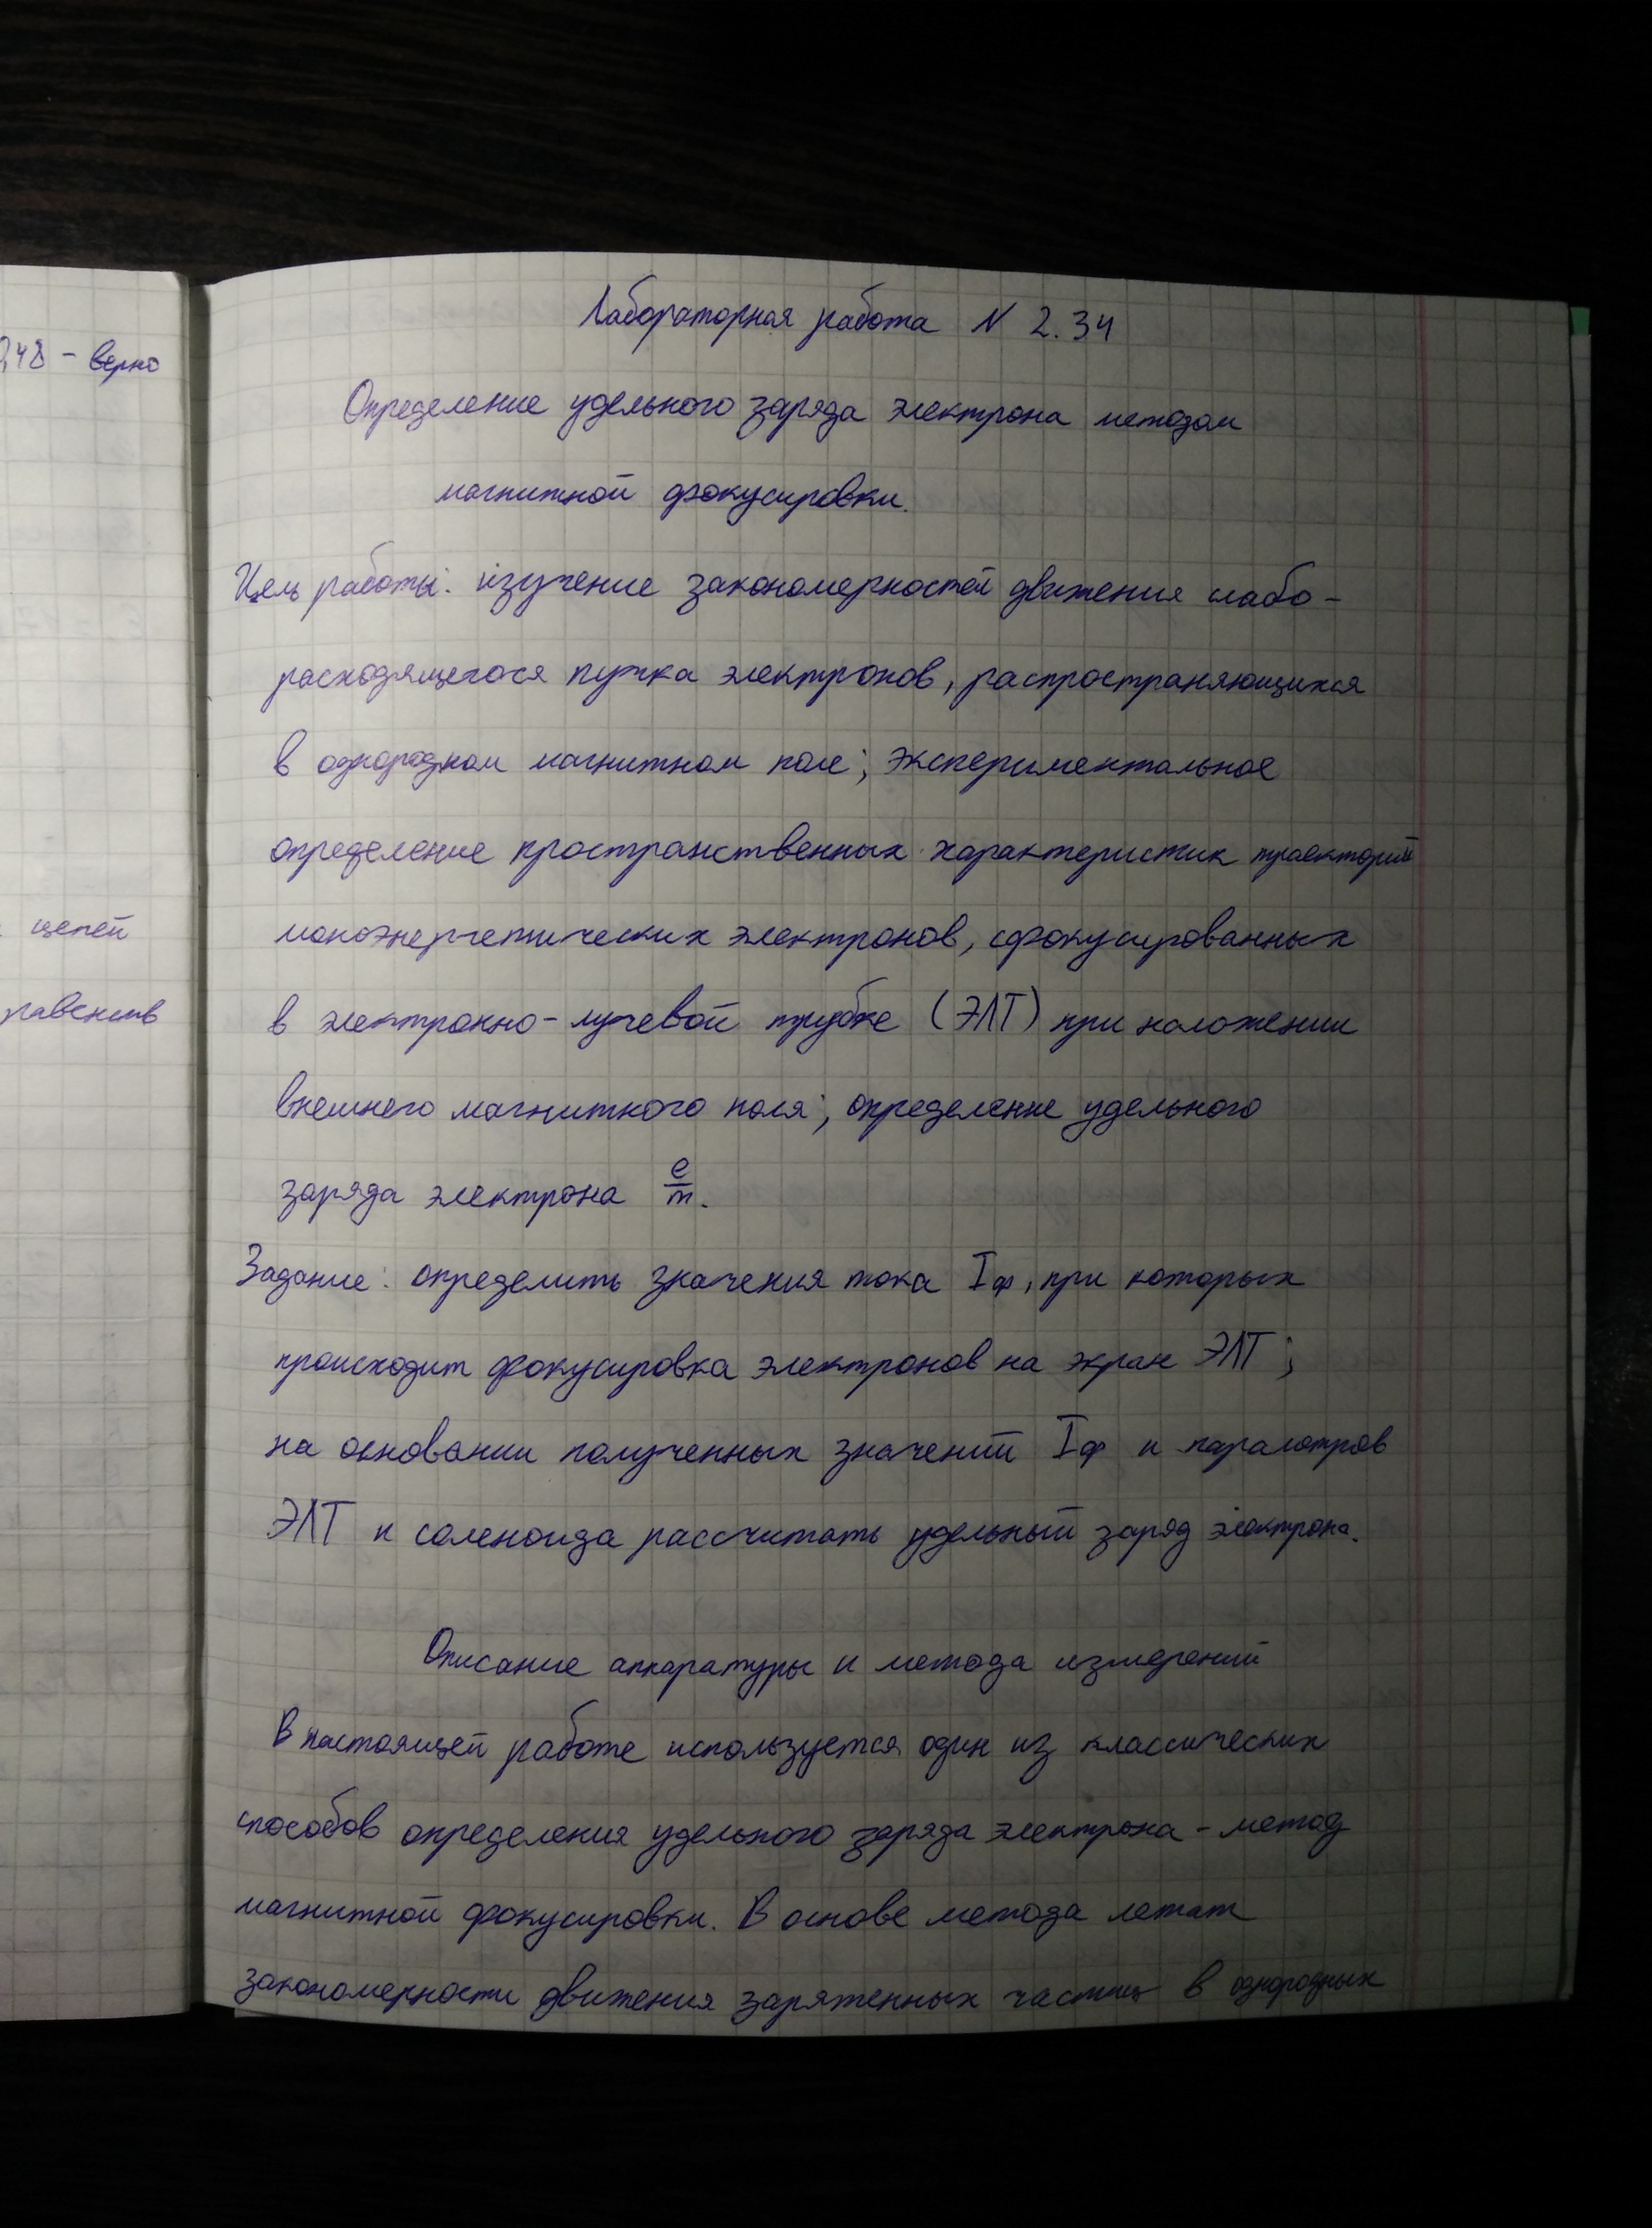 Лабораторная работа N 2.34
Определение удельного заряда электрона методом
магнитной фокусировки.
Цель работы: изучение закономерностей движения слабо-
расходящегося пучка электронов, распространяющихся
в однородном магнитном поле; экспериментальное
определение пространственных характеристик траекторий
моноэнергетических электронов, сфокусированных
в электронно-лучевой трубке (ЭЛТ) при наложении
внешнего магнитного поля; определение удельного
заряда электрона e/m.
Задание: определить значения тока Iф, при которых
происходит фокусировка электронов на экран ЭЛТ;
на основании полученных значений Iф и параметров
ЭЛТ и соленоида рассчитать удельный заряд электрона.
Описание аппаратуры и метода измерений
В настоящей работе используется один из классических
способов определения удельного заряда электрона - метод
магнитной фокусировки. В основе метода лежат
закономерности движения заряженных частиц в однородных
48 - верно
цепей
равенств